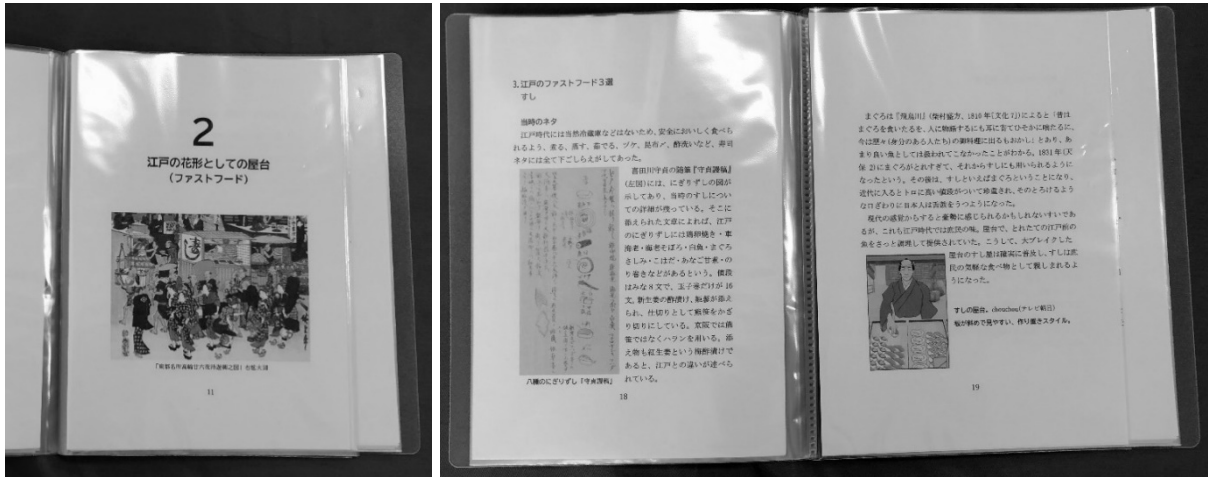 2
江戸の花形としての屋台
(ファストフード)
11
3.江戸のファストフード3選
すし
当時のネタ
江戸時代には当然冷蔵庫などはないため、安全においしく食べら
れるよう、煮る、蒸す、茹でる、ヅケ、昆布〆、酢洗いなど、寿司
ネタには全て下ごしらえがしてあった。
喜田川守貞の随筆『守貞謾稿』
(左図)には、にぎりずしの図が
示してあり、当時のすしについ
ての詳細が残っている。そこに
添えられた文章によれば、江戸
のにぎりずしには鶏卵焼き・車
海老・海老そぼろ・白魚・まぐろ
さしみ・こはだ・あなご甘煮・の
り巻きなどがあるという。値段
はみな8文で、玉子巻だけが16
文。新生姜の酢漬け、
が添え
られ、仕切りとして熊笹をかざ
り切りにしている。京阪では
ではなくハランを用いる。添
え物も紅生姜という梅酢漬けで
あると、江戸との違いが述べら
れている。
八種のにぎりずし『守貞謾稿』
18
まぐろは『飛鳥川』(柴村盛方、1810年(文化7))によると「昔は
まぐろを食いたるを、人に物語するにも耳に寄てひそかに
今は歴々(身分のある人たち)の御料理に出るもおかし」とあり、あ
まり良い魚としては扱われてこなかったことがわかる。1831年(天
保2)にまぐろがとれすぎて、それからすしにも用いられるように
なったという。その後は、すしといえばまぐろということになり、
近代に入るとトロに高い値段がついて珍重され、そのとろけるよう
な口ざわりに日本人は舌鼓をうつようになった。
現代の感覚からすると豪勢に感じられるかもしれないすしであ
るが、これも江戸時代では庶民の味。屋台で、とれたての江戸前の
魚をさっと調理して提供されていた。こうして、大ブレイクした
屋台のすし屋は確実に普及し、すしは庶
民の気軽な食べ物として親しまれるよ
うになった。
すしの屋台。chouchou(テレビ朝日)
板が斜めで見やすい、作り置きスタイル。
19